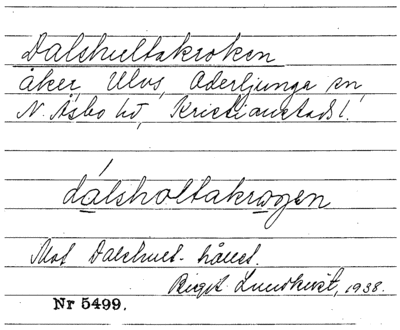 Dalshultakroken
åker, Ulvs, Oderljunga sn,
N. Åsbo hd, Kristianstads l.
dálsholtakrogen
Mot Dalshult-hållet.
Birgit Lundkvist, 1938.
Nr 5499.